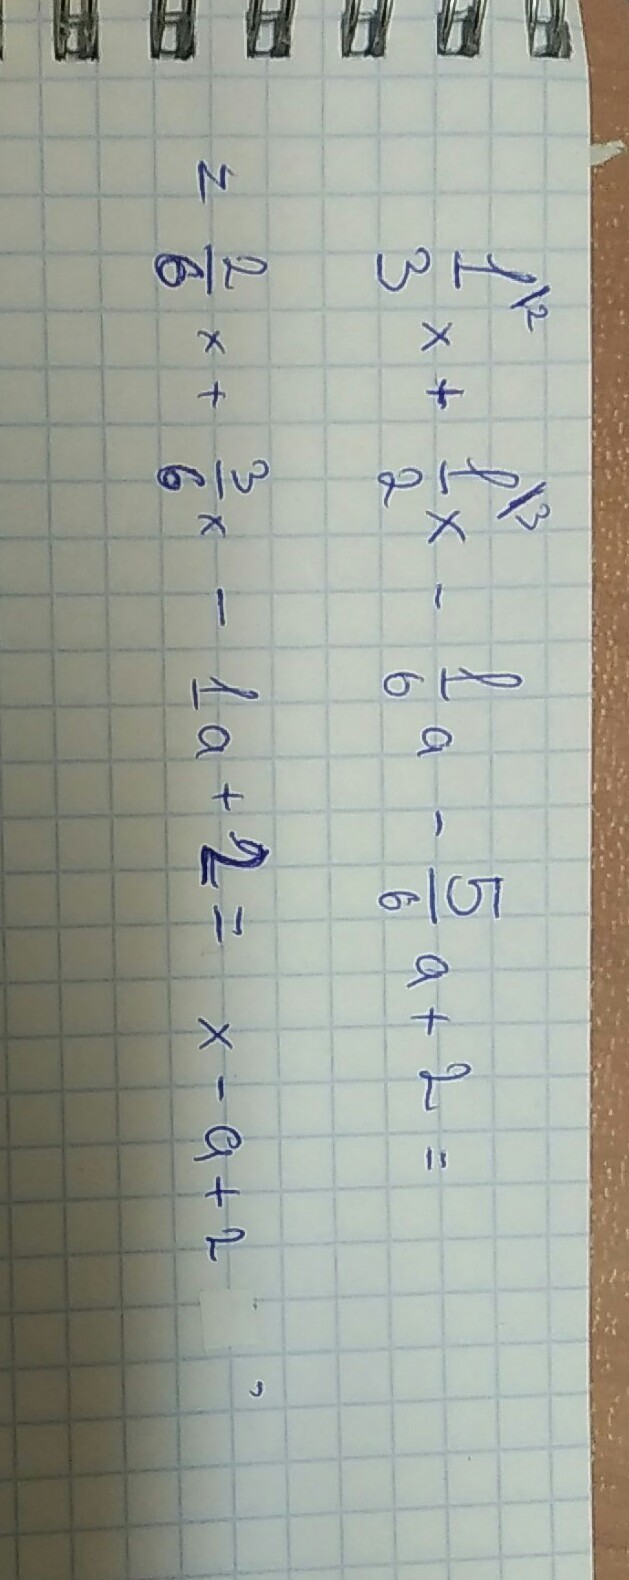 1\2/3 x + 1\3/2 x - 1/6 a - 5/6 a + 2 =
= 2/6 x + 3/6 x - 1a + 2 = x - a + 2